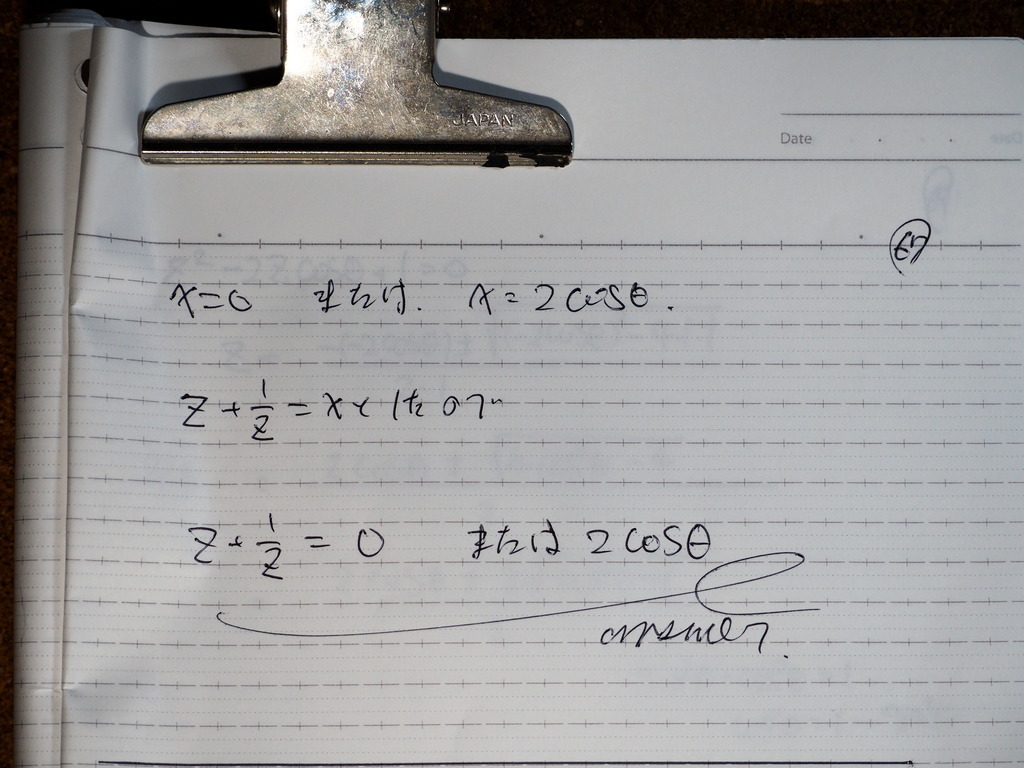 JAPAN
Date
x=0 または. x=2cosθ.
z+1/z=xとしたので
z+1/z=0 または 2cosθ
answer.